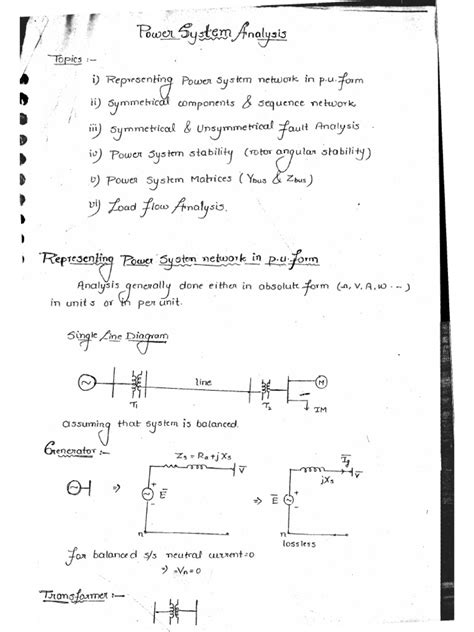 Power System Analysis
Topics :-
i) Representing Power System network in p.u. form
ii) Symmetrical components & sequence network
iii) Symmetrical & Unsymmetrical Fault Analysis
iv) Power System stability (rotor angular stability)
v) Power System Matrices (Ybus & Zbus)
vi) Load flow Analysis.
Representing Power System network in p.u. form
Analysis generally done either in absolute form (Ω, V, A, ω ---)
in units or in per unit.
Single Line Diagram
line
M
T1
T2
IM
assuming that system is balanced.
Generator :-
Zs = Ra + jXs
V̄
Ig
V̄
jXs
⇒
Ē
⇒
Ē
n
n
lossless
for balanced s/s neutral current=0
⇒ =Vn=0
Transformer :-